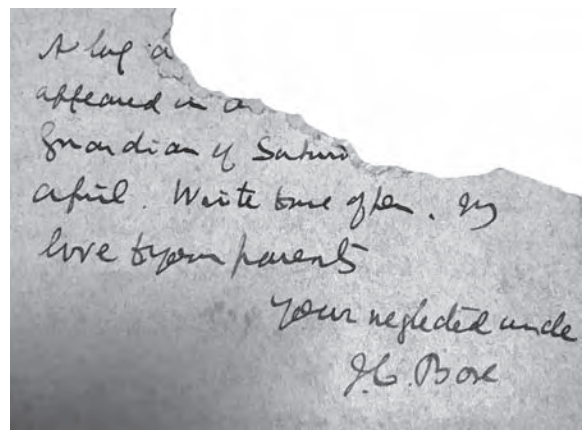 A long a
appeared in a
Guardian of Satur
April. Write more often. My
love to your parents
Your neglected uncle
J.C. Bose